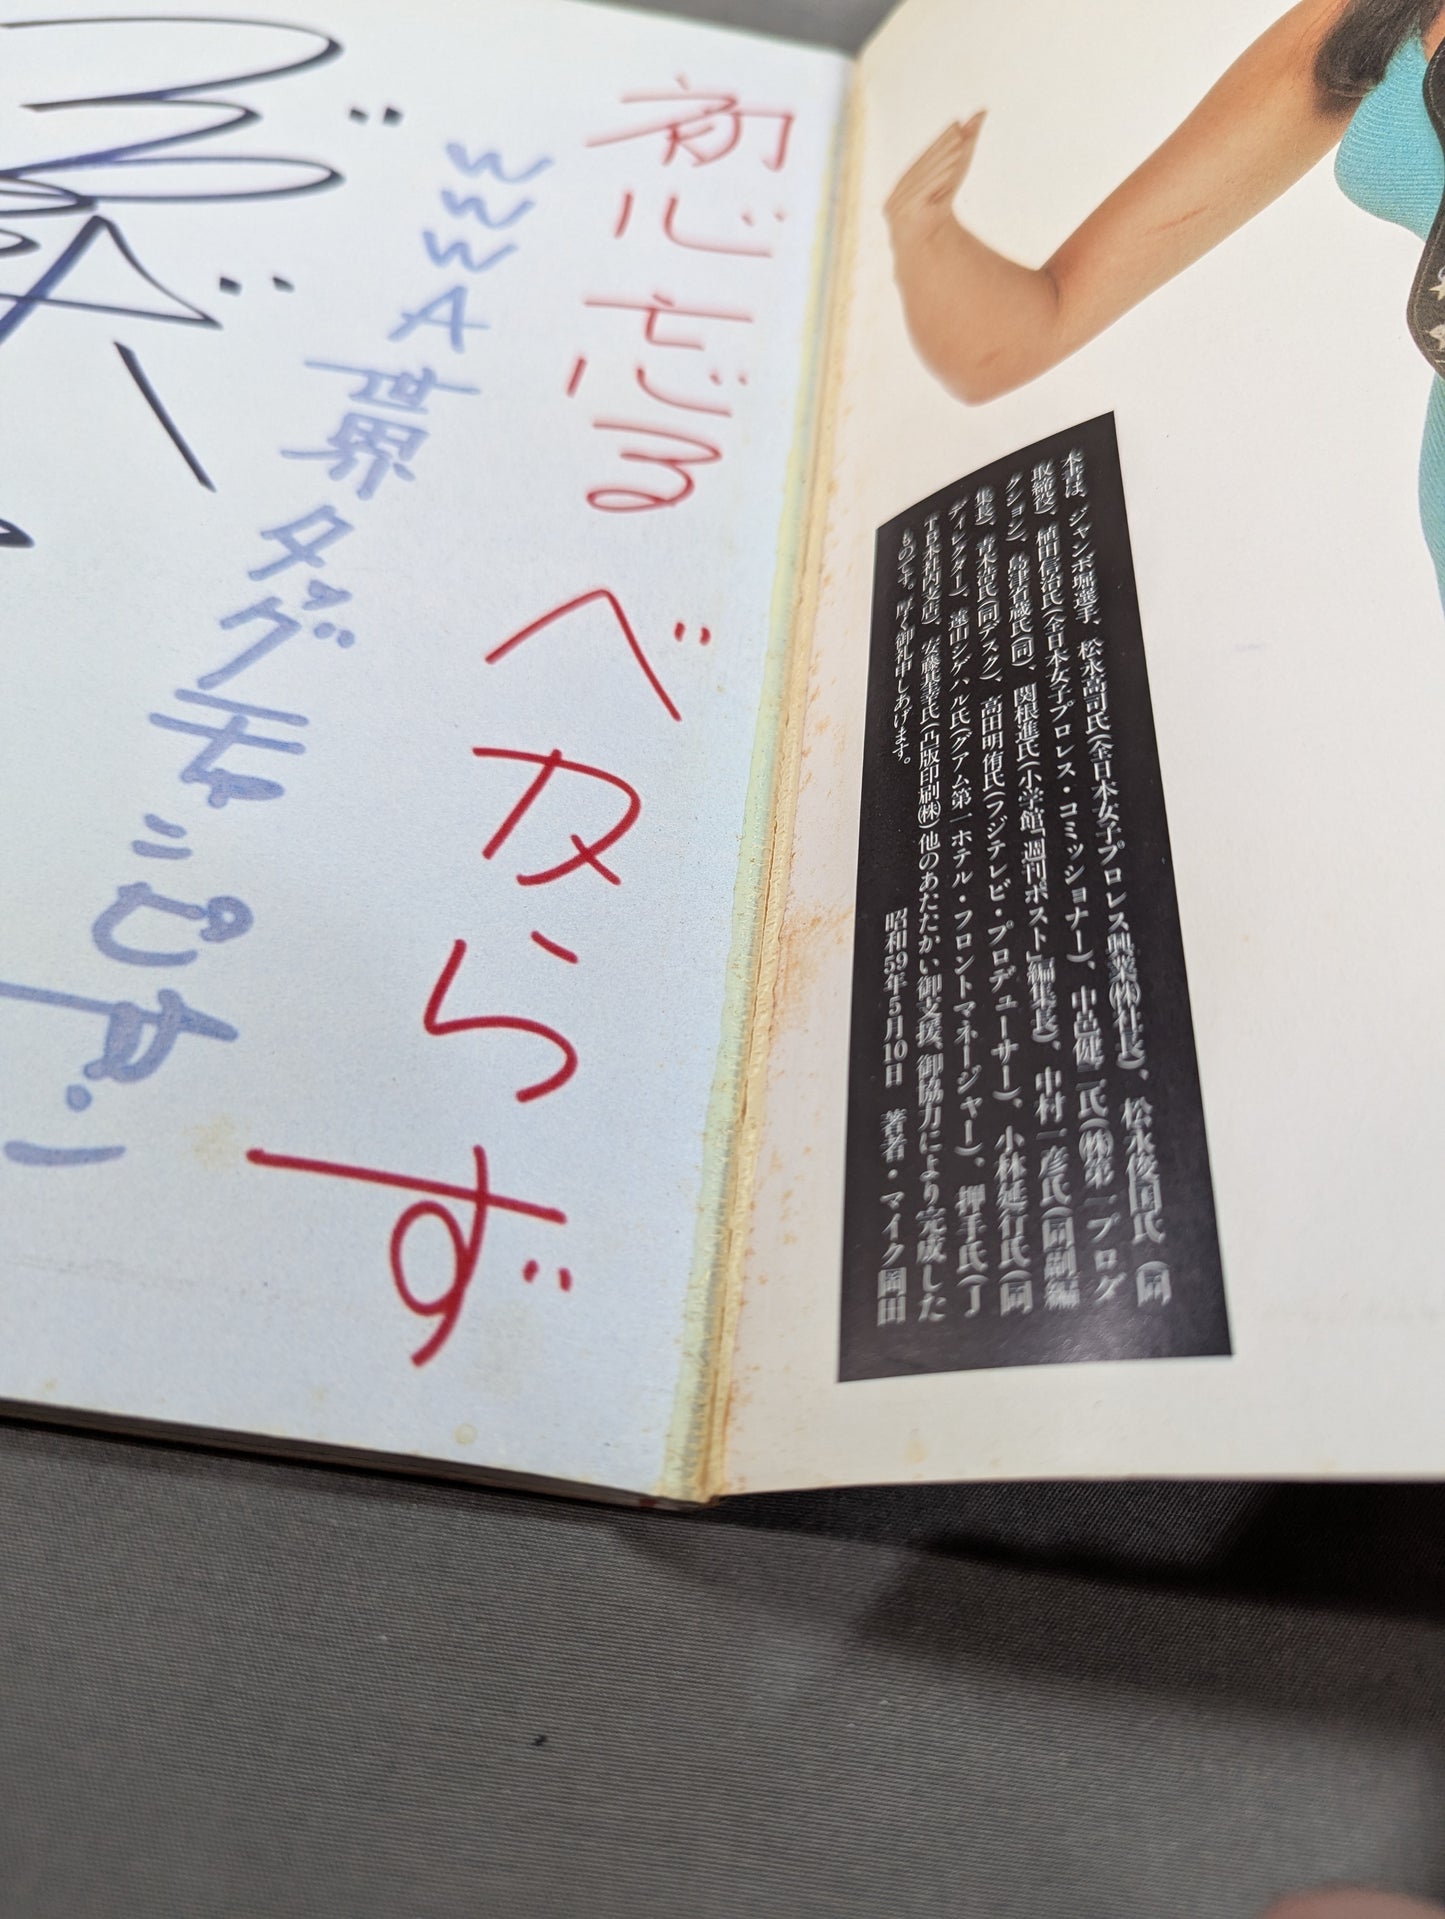 本書は、ジャンボ堀選手、松永高司氏(全日本女子プロレス興業㈱社長)、松永俊国氏(同
取締役、植田信治氏(全日本女子プロレス・コミッショナー)、中邑健二氏(㈱第一プログ
クション)、島津省蔵氏(同)、関根進氏(小学館「週刊ポスト」編集長)、中村一彦氏(同副編
集長)、青木浩氏(同デスク)、高田明侑氏(フジテレビ・プロデューサー)、小林延行氏(同
ディレクター)、遠山シゲハル氏(グアム第一ホテル・フロントマネージャー)、押手氏(J
TB本社内支店)、安藤基幸氏(凸版印刷㈱)他のあたたかい御支援、御協力により完成した
ものです。厚く御礼申しあげます。
昭和59年5月10日 著者・マイク岡田
初心忘るべからず
WWWA世界タッグチャンピオン